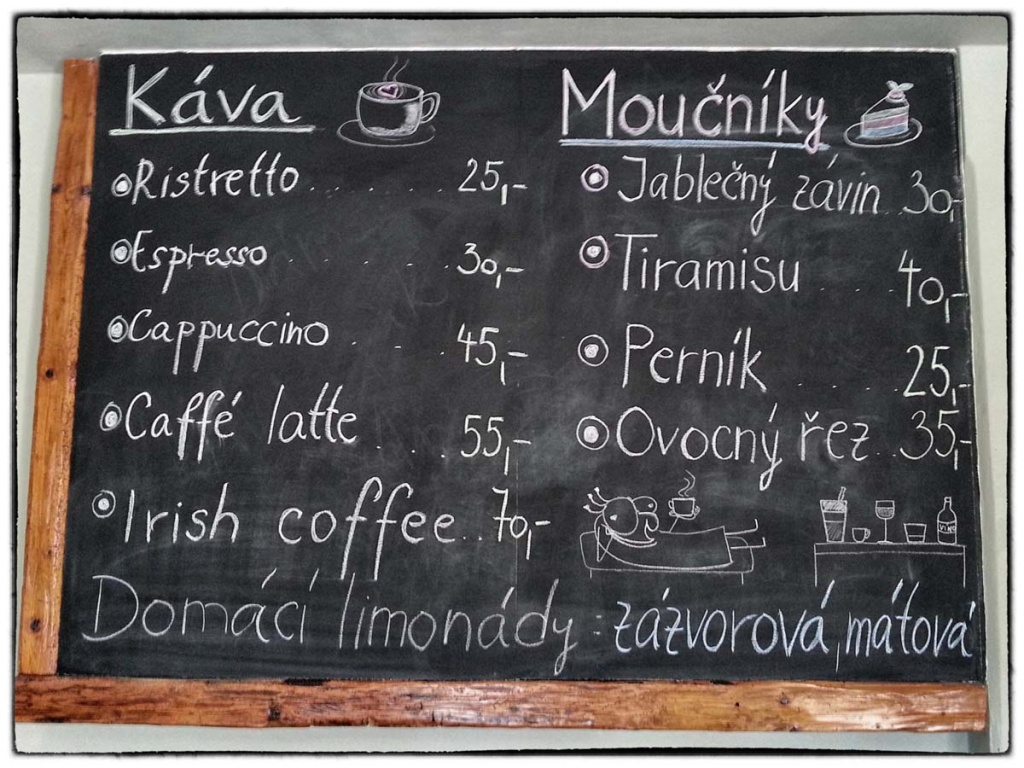 Káva
Ristretto........25,-
Espresso......30,-
Cappuccino....45,-
Caffé latte....55,-
Irish coffee..70,-
Moučníky
Jablečný závin..30,-
Tiramisu...40,-
Perník.....25,-
Ovocný řez..35,-
VINO
Domácí limonády: zázvorová, mátová